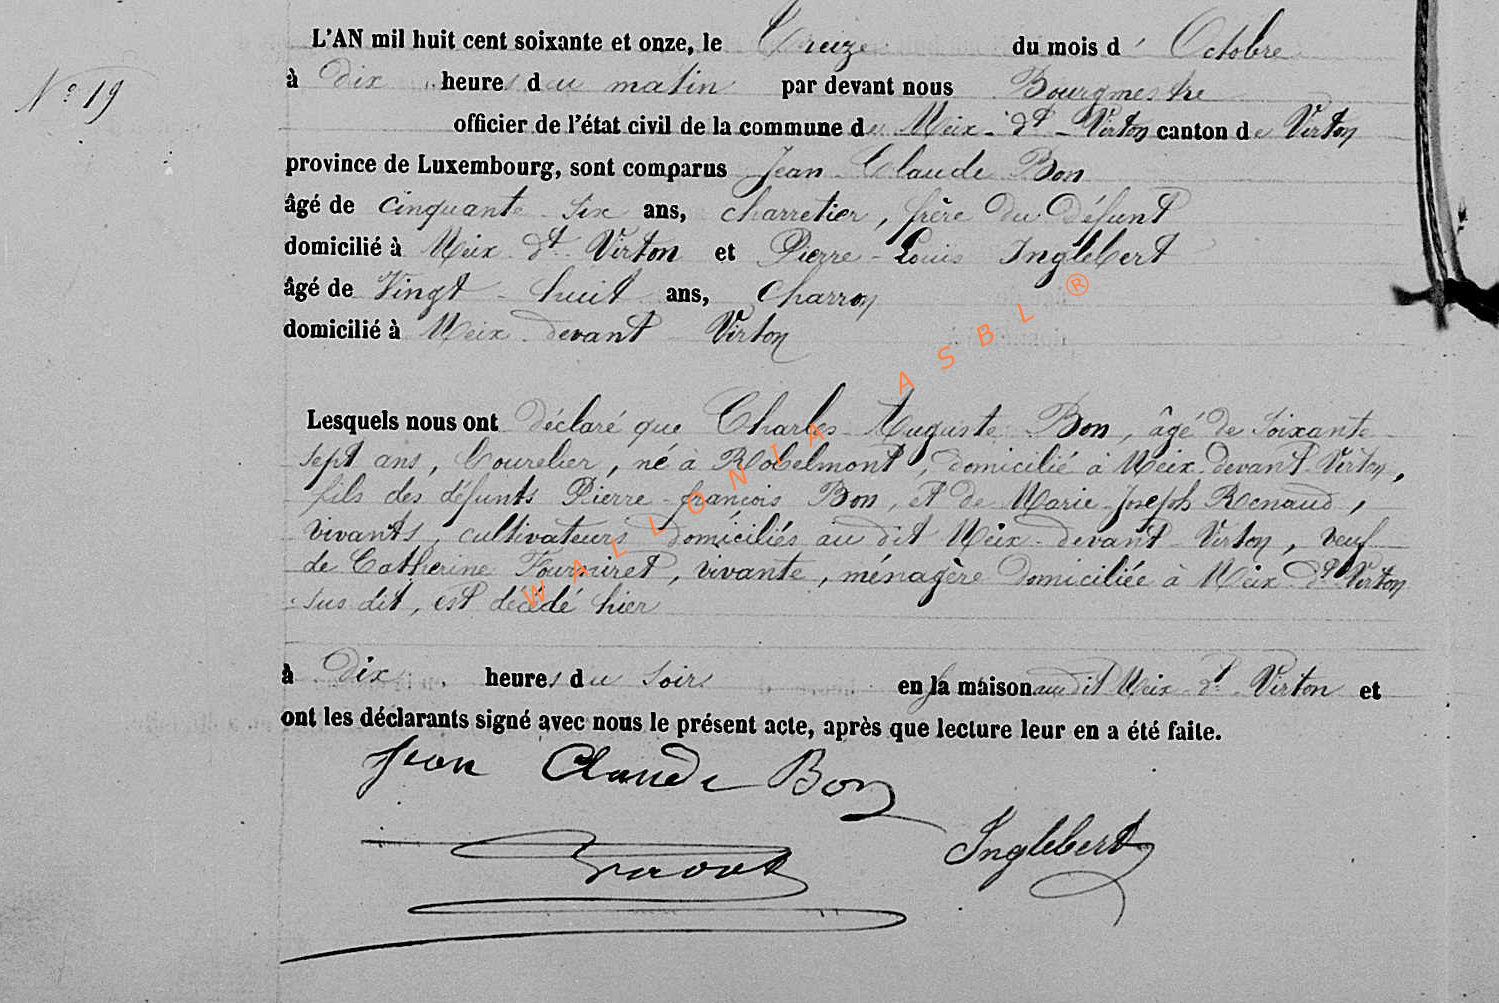 L'AN mil huit cent soixante et onze, le Treize du mois d' Octobre
N° 19
à dix heures du matin par devant nous Bourgmestre
officier de l'état civil de la commune de Meix-dt-Virton canton de Virton
province de Luxembourg, sont comparus Jean Claude Bon
âgé de cinquante six ans, charretier, frère du défunt
domicilié à Meix dt Virton et Pierre-Louis Inglebert
âgé de Vingt-huit ans, charron
domicilié à Meix devant Virton
Lesquels nous ont déclaré que Charles Auguste Bon, âgé de soixante
sept ans, Courelier, né à Robelmont, domicilié à Meix-devant-Virton,
fils des défunts Pierre-françois Bon, et de Marie-Joseph Renaud,
vivants, cultivateurs domiciliés au dit Meix-devant-Virton, veuf
de Catherine Fourniret, vivante, ménagère domiciliée à Meix dt Virton
sus dit, est décédé hier
à Dix heures du soir en la maison au dit Meix dt Virton et
ont les déclarants signé avec nous le présent acte, après que lecture leur en a été faite.
Jean Claude Bon
Inglebert
WALLONIA ASBL ®